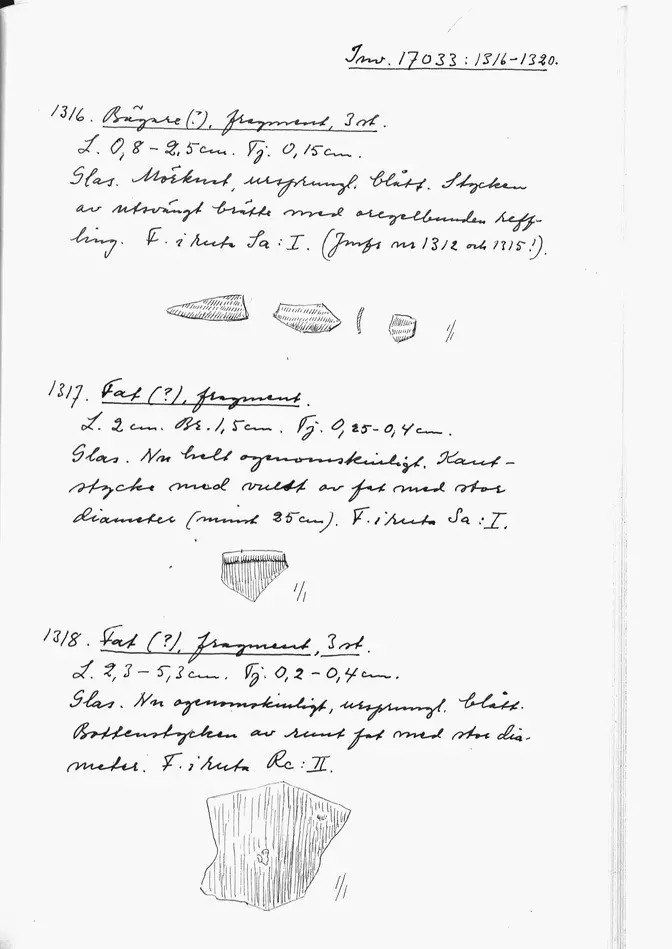 Inv. 17033:1316-1320.
1316. Bägare(?), fragment, 3 st.
L. 0,8-2,5cm. Tj. 0,15cm.
Glas. Mörknat, ursprungl. blått. Stycken
av utsvängt brätte med oregelbunden reff-
ling. F. i ruta Sa:I. (Jmfr nr 1312 och 1315!).
1/1
1317. Fat (?), fragment.
L. 2cm. Br. 1,5cm. Tj. 0,25-0,4cm.
Glas. Nu helt ogenomskinligt. Kant-
stycke med vulst av fat med stor
diameter (minst 25cm). F. i ruta Sa:I.
1/1
1318. Fat (?), fragment, 3 st.
L. 2,3-5,3cm. Tj. 0,2-0,4cm.
Glas. Nu ogenomskinligt, ursprungl. blått.
Bottenstycken av runt fat med stor dia-
meter. F. i ruta Rc:II.
1/1